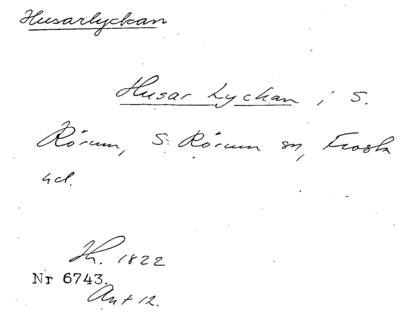 Husarlyckan
Husar Lyckan i S.
Rörum, S. Rörum sn, Frosta
hd.
Th. 1822
Nr 6743.
Ant 12.